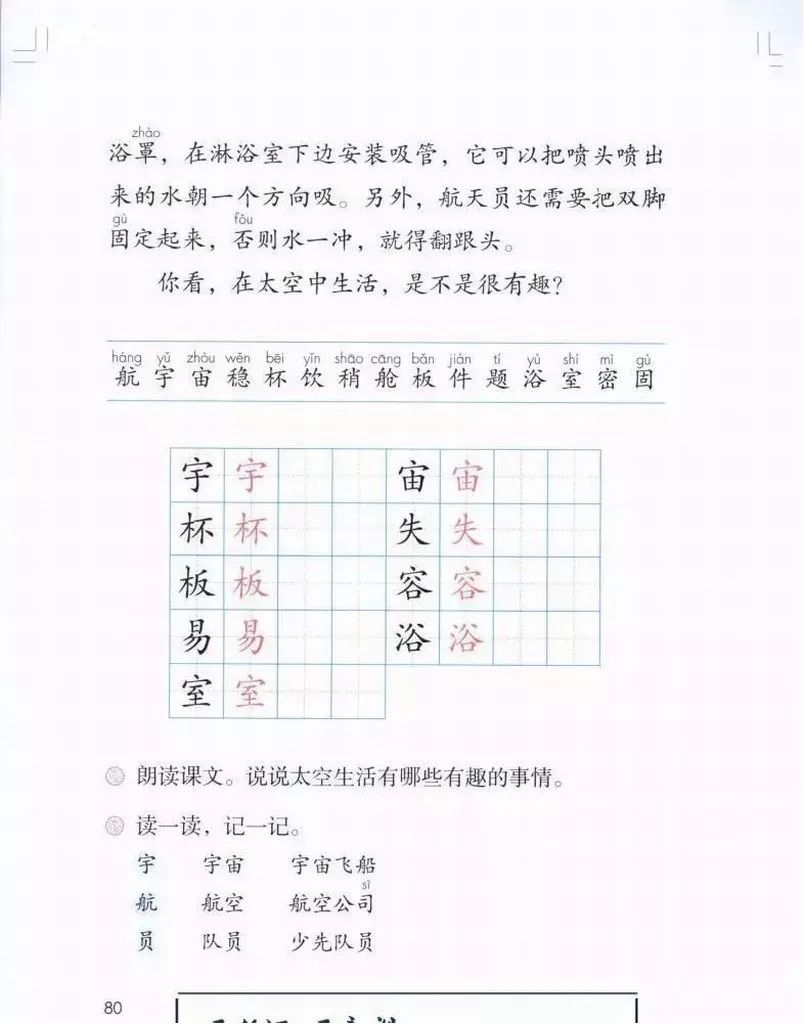 zhào
浴罩，在淋浴室下边安装吸管，它可以把喷头喷出
来的水朝一个方向吸。另外，航天员还需要把双脚
gù fǒu
固定起来，否则水一冲，就得翻跟头。
你看，在太空中生活，是不是很有趣？
háng yǔ zhòu wěn bēi yǐn shāo cāng bǎn jiàn tí yù shì mì gù
航 宇 宙 稳 杯 饮 稍 舱 板 件 题 浴 室 密 固
宇 宇 宙 宙
杯 杯 失 失
板 板 容 容
易 易 浴 浴
室 室
朗读课文。说说太空生活有哪些有趣的事情。
读一读，记一记。
宇 宇宙 宇宙飞船
sī
航 航空 航空公司
员 队员 少先队员
80